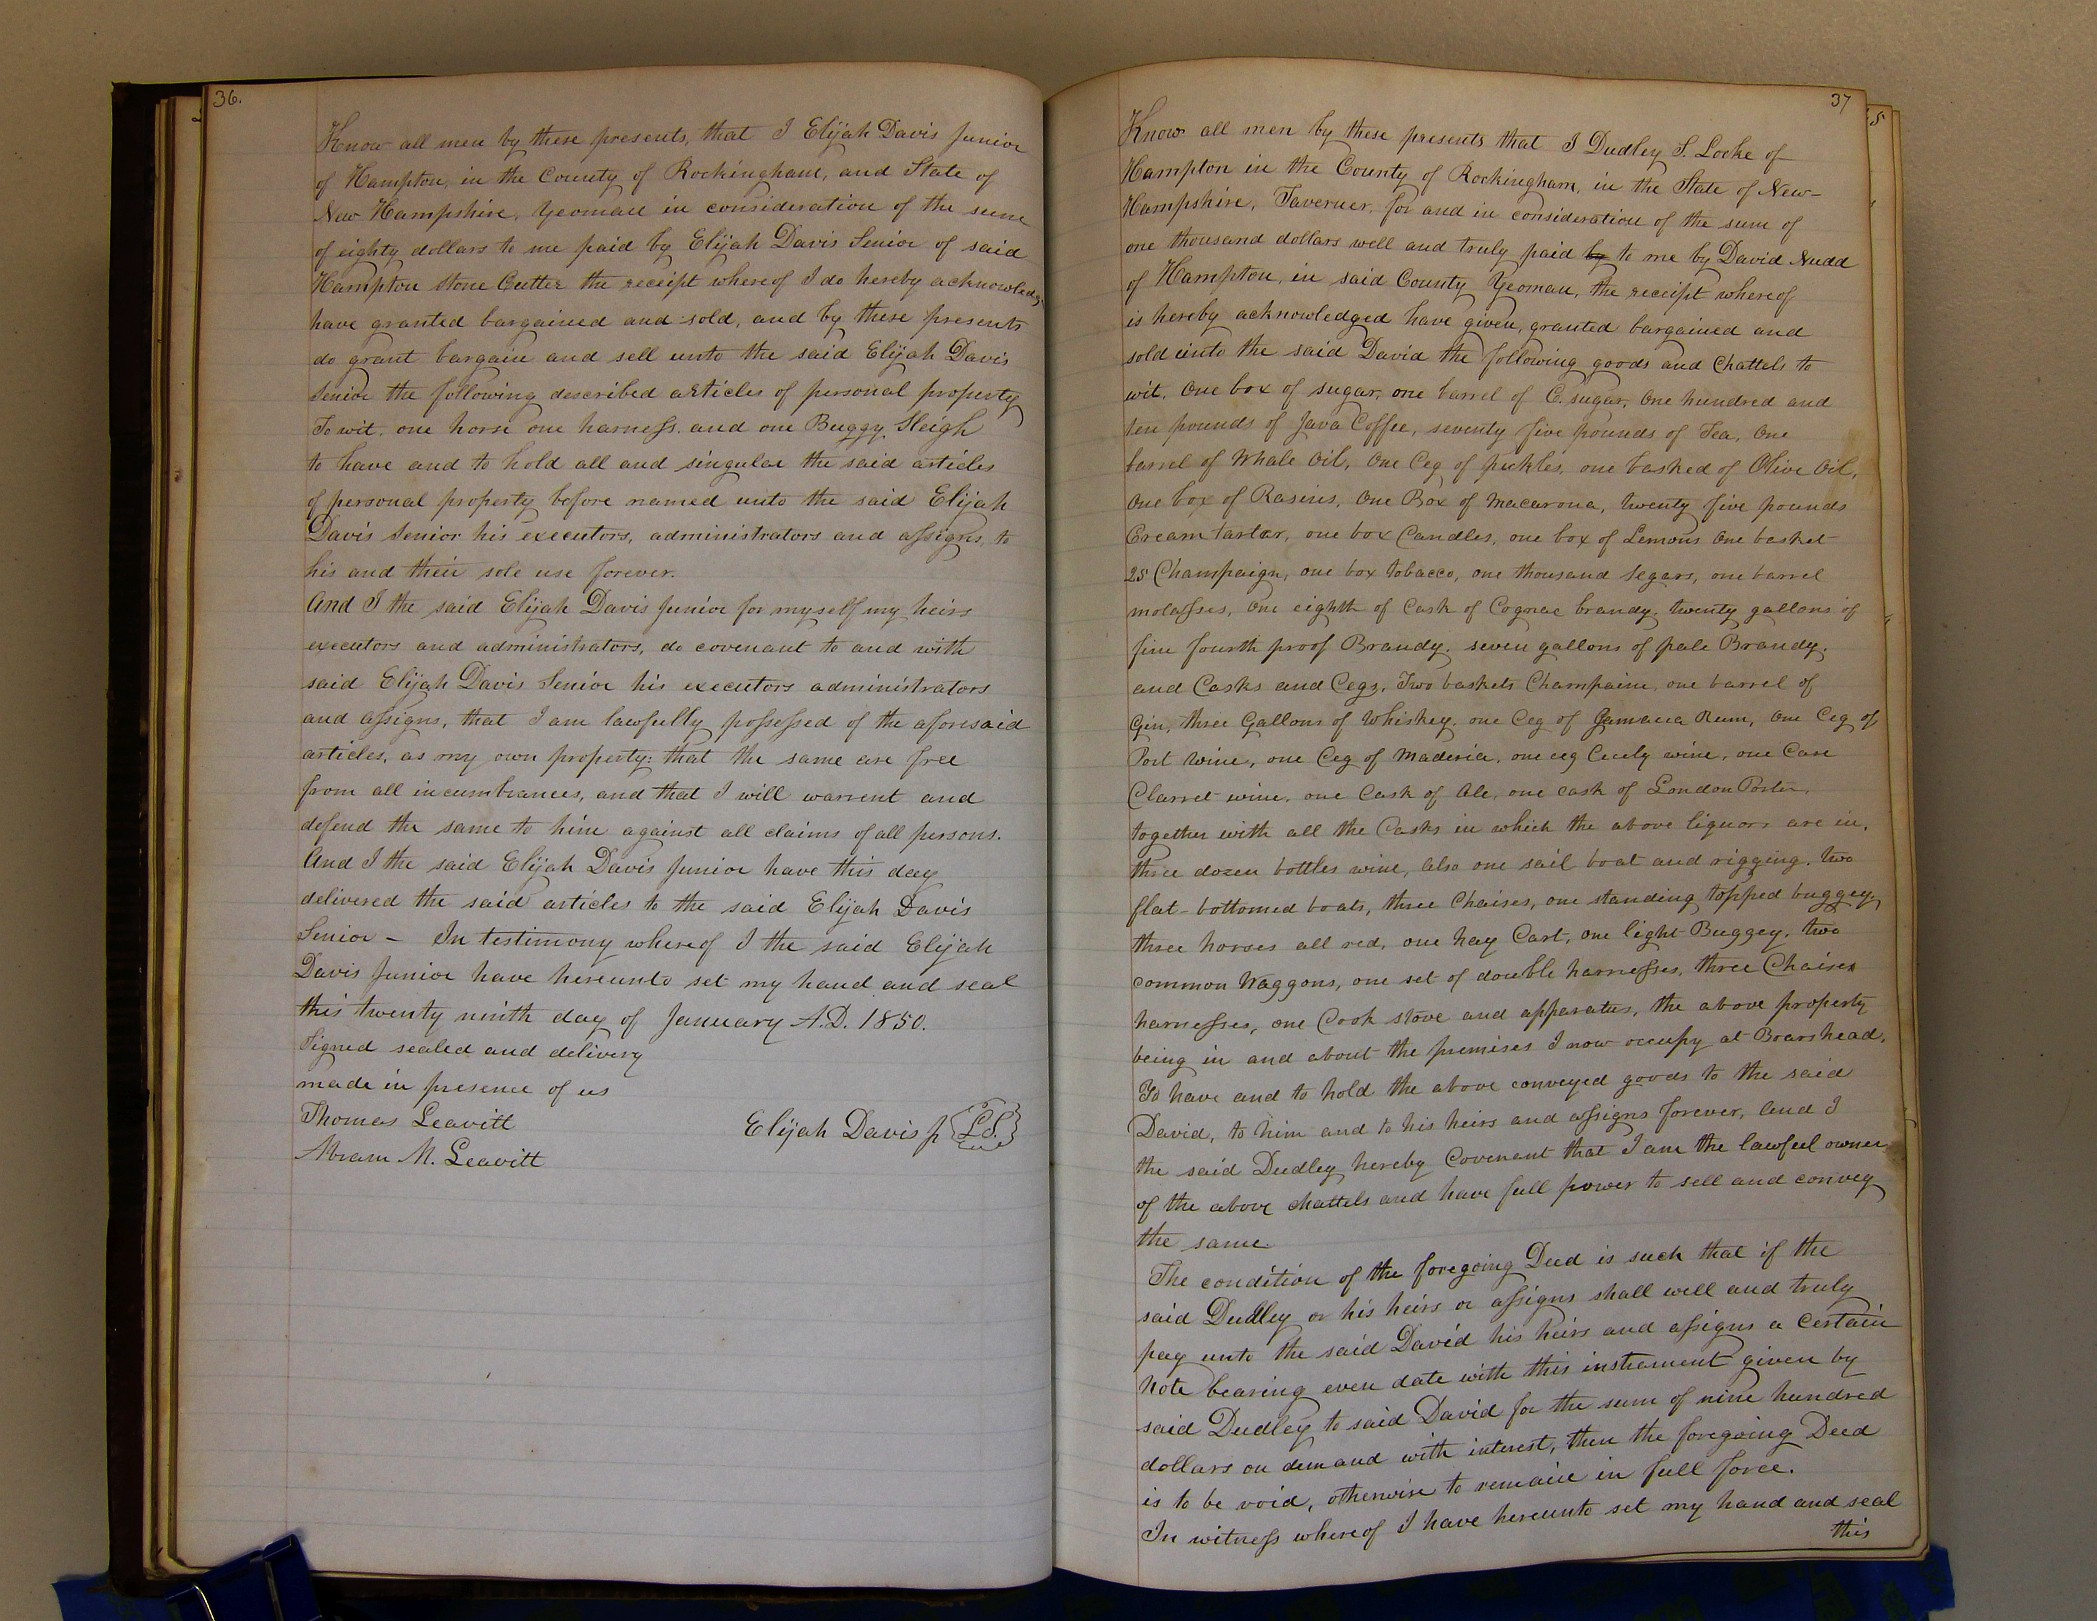 36.
Know all men by these presents, that I Elijah Davis Junior
of Hampton, in the County of Rockingham, and State of
New Hampshire, Yeoman in consideration of the sum
of eighty dollars to me paid by Elijah Davis Senior of said
Hampton Stone Cutter the receipt whereof I do hereby acknowledge,
have granted bargained and sold, and by these presents
do grant bargain and sell unto the said Elijah Davis
Senior the following described articles of personal property
To wit, one horse one harness, and one Buggy Sleigh
to have and to hold all and singular the said articles
of personal property before named unto the said Elijah
Davis Senior his executors, administrators and assigns, to
his and their sole use forever.
And I the said Elijah Davis Junior for myself my heirs
executors and administrators, do covenant to and with
said Elijah Davis Senior his executors administrators
and assigns, that I am lawfully possessed of the aforesaid
articles, as my own property: that the same are free
from all incumbrances, and that I will warrent and
defend the same to him against all claims of all persons.
And I the said Elijah Davis Junior have this day
delivered the said articles to the said Elijah Davis
Senior – In testimony whereof I the said Elijah
Davis Junior have hereunto set my hand and seal
this twenty ninth day of January A.D. 1850.
Signed sealed and delivery
made in presence of us
Thomas Leavitt
Elijah Davis Jr L.S.
Abram M. Leavitt
37
Know all men by these presents that I Dudley S. Locke of
Hampton in the County of Rockingham, in the State of New-
Hampshire, Taverner, for and in consideration of the sum of
one thousand dollars well and truly paid by to me by David Nudd
of Hampton, in said County Yeoman, the receipt whereof
is hereby acknowledged have given, granted bargained and
sold unto the said David the following goods and Chattels to
wit. One box of sugar, one barrel of C. sugar, One hundred and
ten pounds of Java Coffee, seventy five pounds of Tea, One
barrel of Whale Oil, One Ceg of pickles, one basked of Olive Oil,
One box of Rasins, One Box of Macarona, twenty five pounds
Cream tartar, one box Candles, one box of Lemons One basket
25 Champaign, one box tobacco, one thousand Segars, one barrel
molasses, One eighth of Cask of Cognac brandy, twenty gallons of
five fourth proof Brandy, seven gallons of pale Brandy,
and Casks and Cegs, Two baskets Champaine, one barrel of
Gin, three Gallons of Whiskey, one Ceg of Jamaica Rum, One Ceg of
Port Wine, one Ceg of Maderia, one ceg Cicily wine, one Case
Clarret wine, one Cask of Ale, one cask of London Porter,
together with all the Casks in which the above liquors are in,
three dozen bottles wine, also one sail boat and rigging, two
flat-bottomed boats, three Chaises, one standing topped buggey,
three horses all red, one hay Cart, one light Buggey, two
common Waggons, one set of double harnesses, three Chaises
harnesses, one Cook stove and apparatus, the above property
being in and about the premises I now occupy at Boarshead,
To have and to hold the above conveyed goods to the said
David, to him and to his heirs and assigns forever, And I
the said Dudley hereby Covenant that I am the lawful owner
of the above chattels and have full power to sell and convey
the same.
The condition of the foregoing Deed is such that if the
said Dudley or his heirs or assigns shall well and truly
pay unto the said David his heirs and assigns a Certain
Note bearing even date with this instrument given by
said Dudley to said David for the sum of nine hundred
dollars on demand with interest, then the foregoing Deed
is to be void, otherwise to remain in full force.
In witness whereof I have hereunto set my hand and seal
this